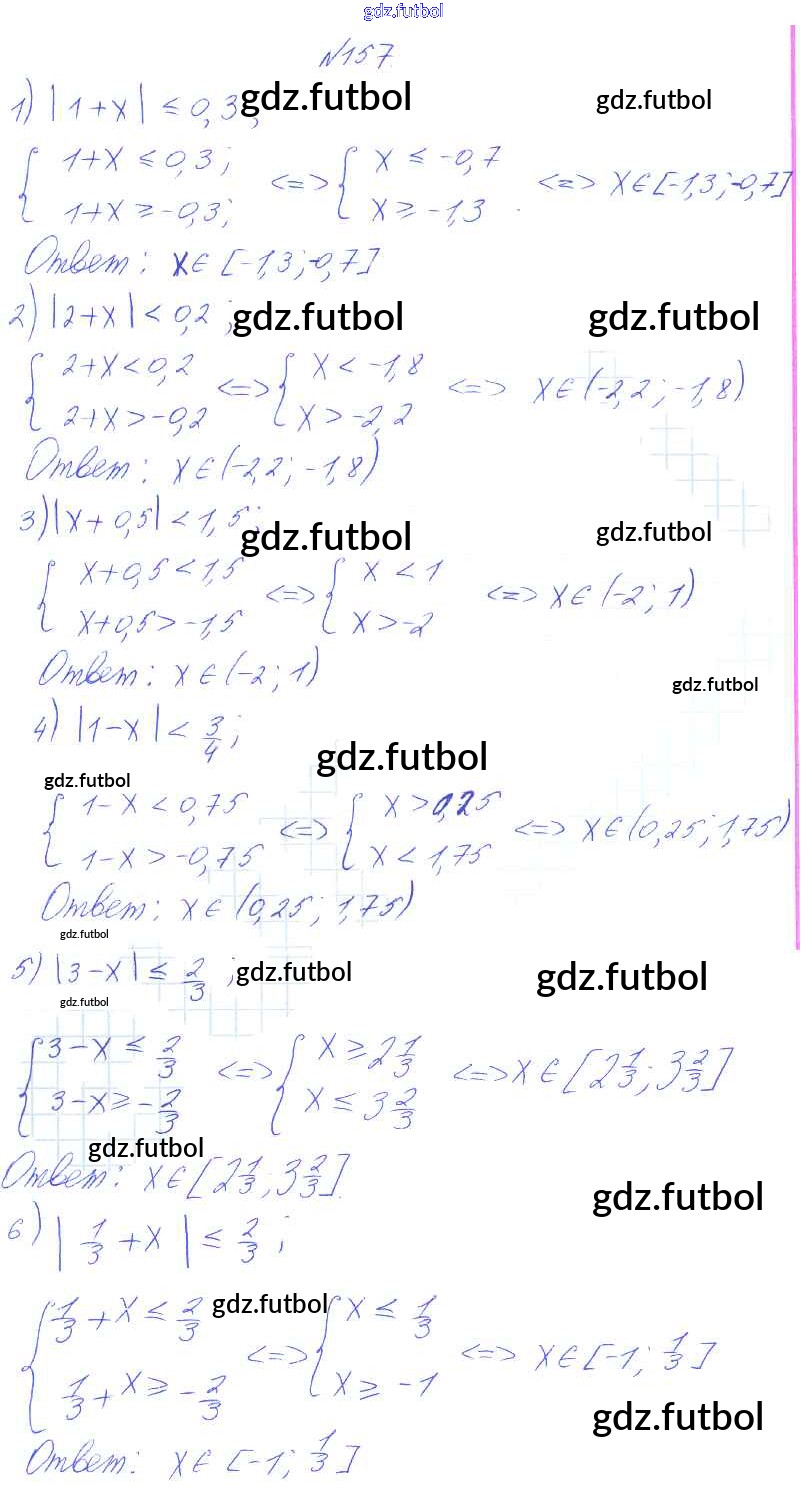 gdz.futbol
№157.
1) |1+x| ≤ 0,3; gdz.futbol gdz.futbol
{ 1+x ≤ 0,3; 1+x ≥ -0,3; <=> { x ≤ -0,7 x ≥ -1,3 . <=> x∈[-1,3;-0,7]
Ответ: x∈[-1,3;-0,7]
2) |2+x| < 0,2; gdz.futbol gdz.futbol
{ 2+x < 0,2 2+x > -0,2 <=> { x < -1,8 x > -2,2 <=> x∈(-2,2; -1,8)
Ответ: x∈(-2,2; -1,8)
3) |x+0,5| < 1,5; gdz.futbol gdz.futbol
{ x+0,5 < 1,5 x+0,5 > -1,5 <=> { x < 1 x > -2 <=> x∈(-2; 1)
Ответ: x∈(-2; 1)
gdz.futbol
4) |1-x| < 3/4;
gdz.futbol
gdz.futbol
{ 1-x < 0,75 1-x > -0,75 <=> { x > 0,25 x < 1,75 <=> x∈(0,25; 1,75)
Ответ: x∈(0,25; 1,75)
gdz.futbol
5) |3-x| ≤ 2/3; gdz.futbol gdz.futbol
gdz.futbol
{ 3-x ≤ 2/3 3-x ≥ -2/3 <=> { x ≥ 2 1/3 x ≤ 3 2/3 <=> x∈[2 1/3; 3 2/3]
gdz.futbol
Ответ: x∈[2 1/3; 3 2/3].
gdz.futbol
6) |1/3 + x| ≤ 2/3;
gdz.futbol
{ 1/3 + x ≤ 2/3 1/3 + x ≥ -2/3 <=> { x ≤ 1/3 x ≥ -1 <=> x∈[-1; 1/3]
gdz.futbol
Ответ: x∈[-1; 1/3]